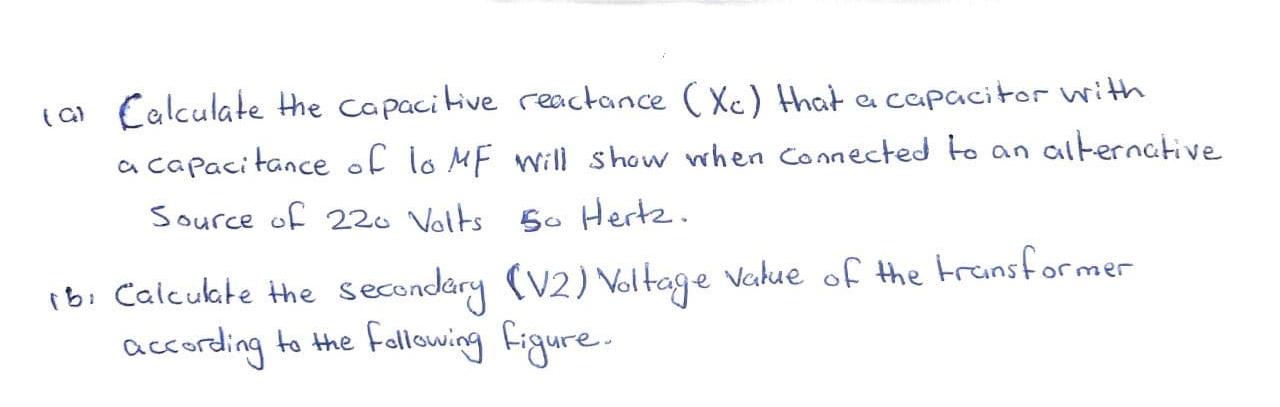 (a) Calculate the capacitive reactance (Xc) that a capacitor with
a capacitance of 10 MF will show when connected to an alternative
Source of 220 Volts 50 Hertz.
(b) Calculate the secondary (V2) Voltage value of the transformer
according to the following figure.